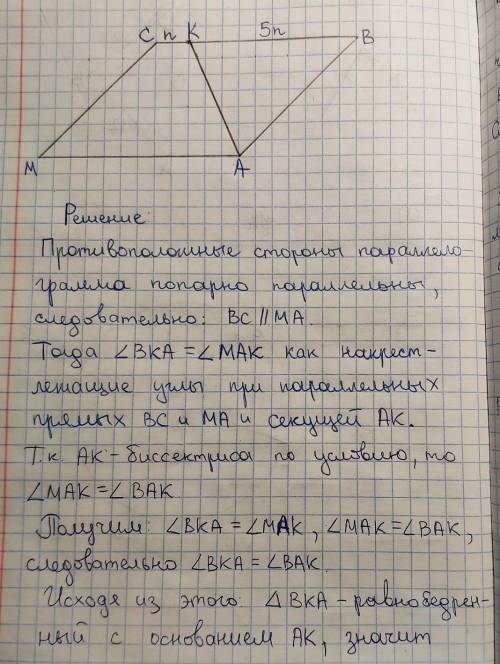 C n K 5n B
M A
Решение:
Противоположные стороны параллело-
грамма попарно параллельны,
следовательно: BC || MA.
Тогда ∠BKA = ∠MAK как накрест-
лежащие углы при параллельных
прямых BC и MA и секущей AK.
Т.к. AK - биссектриса по условию, то
∠MAK = ∠BAK
Получим: ∠BKA = ∠MAK, ∠MAK = ∠BAK,
следовательно ∠BKA = ∠BAK.
Исходя из этого: △BKA - равнобедрен-
ный с основанием AK, значит